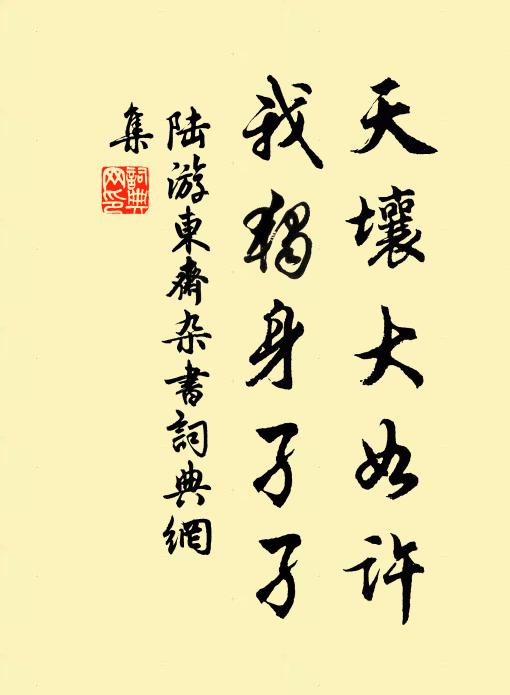 天壤大如许
我獨身孑孑
陆游東齋杂書詞典網
集
詞典網印